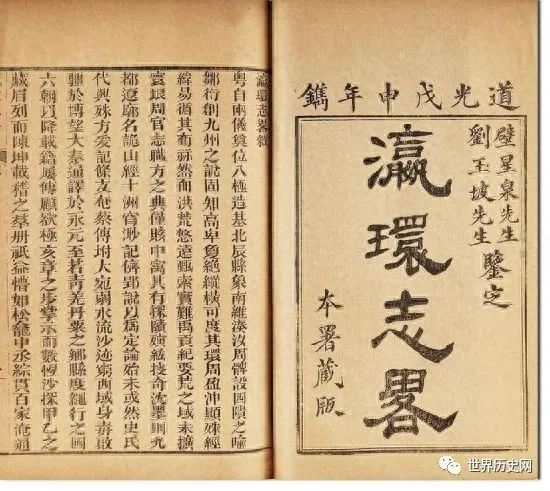 道光戊申年鐫
壁星泉先生
劉玉坡先生
鑒定
瀛環志畧
本署藏版
瀛環志畧敘
粤自兩儀奠位八極造基北辰縣象南維湊沒周髀設四隤之喻
鄒衍創九州之說固知高卑敻絕縱橫可度其環周盈沖顯殊經
緯易循其布然而洪荒悠遠甄索實難禹貢紀要荒之域未擴
寰垠周官志職方之典僅賅中寓其有探賾殫緘技奇沈墨則九
都遼廓名詭山經十洲渺記儕郢說以為定論始未或然史氏
代興殊方爰記條支奄蔡傳坿大宛弱水流沙迹窮西域身毒啟
疆於博望大秦通譯於永元至若青羌丹粟之鄉縣度繩行之國
六朝以降載籍屢傳顧欲極亥章之步掌示而數恆沙採甲乙之
藏眉列而陳坤載稽之羣册祇益懵如松龕中丞綜貫百家淹通
世界历史网